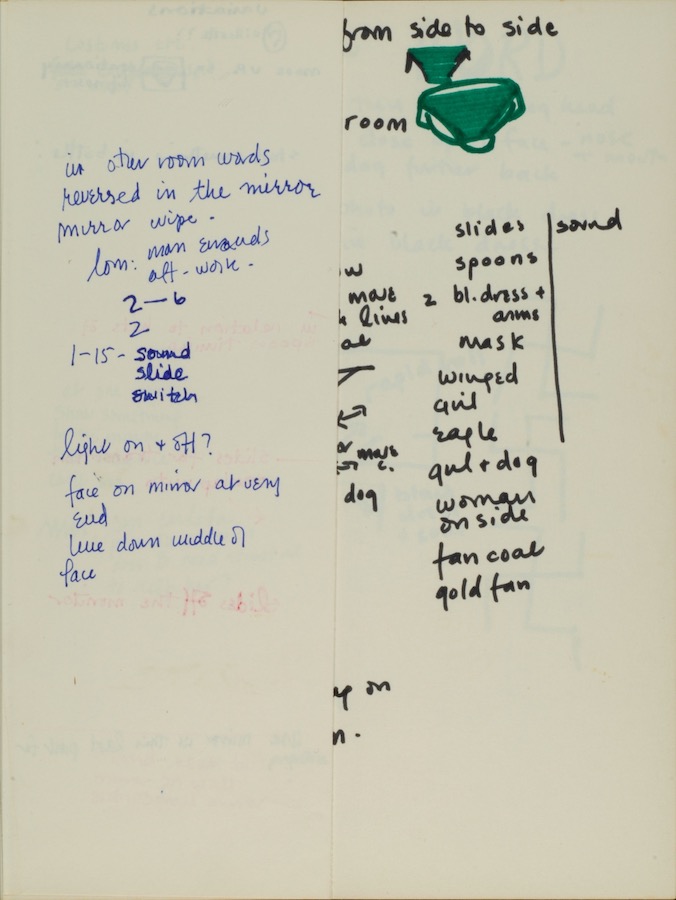 in other room words
reversed in the mirror
mirror wipe.
man
aft-work.
2—6
2
1-15- sound
slide
switch
light on + off?
face on mirror at very
end
line down middle of
face
from side to side
room
slides | sound
spoons
move 2 bl.dress +
lines arms
mask
winged
girl
eagle
move
c. girl + dog
dog woman
on side
fan coat
gold fan
on